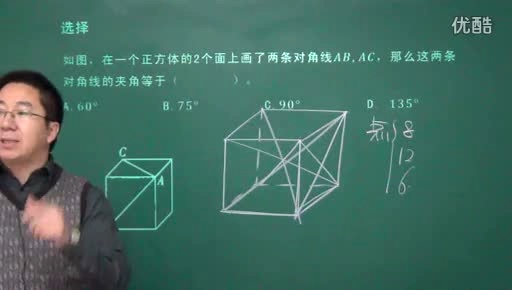 优酷
选择
如图，在一个正方体的2个面上画了两条对角线AB,AC，那么这两条
对角线的夹角等于（　　）。
A.60° B.75° C.90° D. 135°
8
12
6
C
A